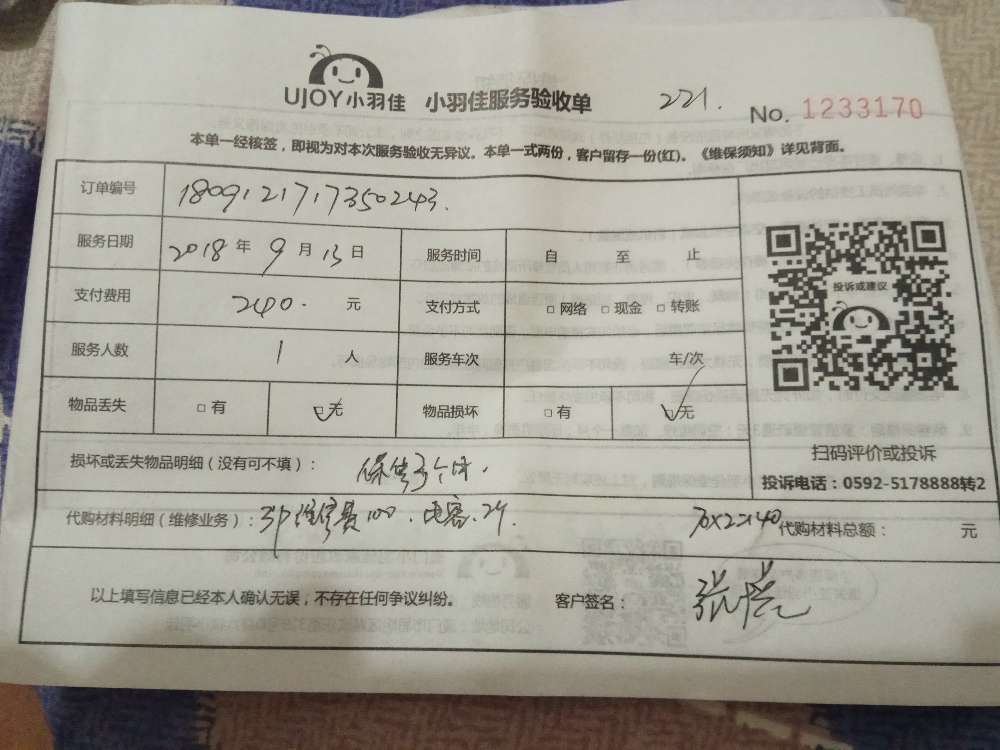 UJOY小羽佳 小羽佳服务验收单 221. No. 1233170
本单一经核签，即视为对本次服务验收无异议。本单一式两份，客户留存一份(红)。《维保须知》详见背面。
订单编号 1809121717350243.
服务日期 2018 年 9 月 13 日 服务时间 自 至 止
支付费用 240. 元 支付方式 □网络 □现金 □转账
服务人数 1 人 服务车次 车/次
物品丢失 □有 □无 物品损坏 □有 □无
投诉或建议
扫码评价或投诉
投诉电话：0592-5178888转2
损坏或丢失物品明细（没有可不填）： 保售3个月.
代购材料明细（维修业务）： 3P维修费100. 电容.2个. 70x2=140 代购材料总额： 元
以上填写信息已经本人确认无误，不存在任何争议纠纷。 客户签名： 张